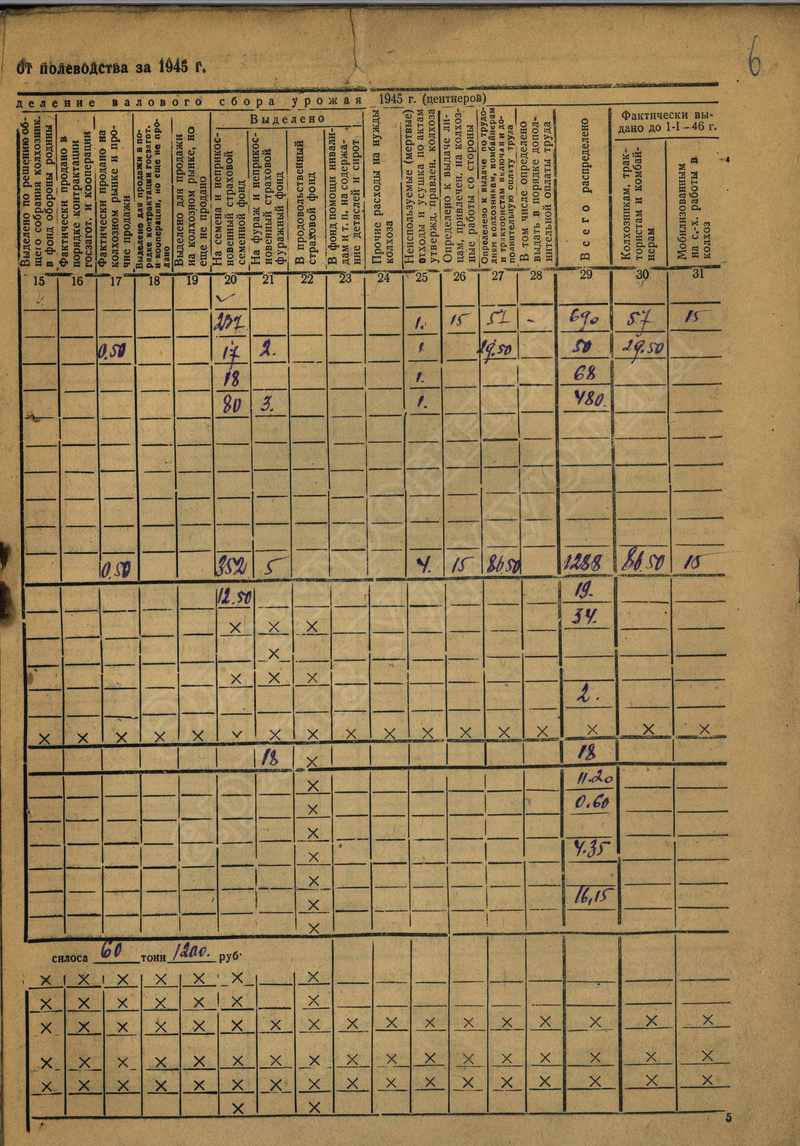 6
от полеводства за 1945 г.
деление валового сбора урожая 1945 г. (центнеров)
Выделено по решению общего собрания колхозник. в фонд обороны родины
Фактически продано в порядке контрактации госзагот. и кооперации
Фактически продано на колхозном рынке и прочие продажи
Выделено для продажи в порядке контрактации госзагот. и кооперации, но еще не продано
Выделено для продажи на колхозном рынке, но еще не продано
Выделено
На семена и неприкосновенный страховой семенной фонд
На фураж и неприкосновенный страховой фуражный фонд
В продовольственный страховой фонд
В фонд помощи инвалидам и т. п. на содержание детяслей и сирот
Прочие расходы на нужды колхоза
Неиспользуемые (мертвые) отходы и усушка по актам утвержд. правлен. колхоза
Определено к выдаче лицам, привлечен. на колхозные работы со стороны
Определено к выдаче по трудодням колхозникам, комбайнерам и трактористам включая и дополнительную оплату труда
В том числе определено выдать в порядке дополнительной оплаты труда
Всего распределено
Фактически выдано до 1-1-46 г.
Колхозникам, трактористам и комбайнерам
Мобилизованным на с.-х. работы в колхоз
15 16 17 18 19 20 21 22 23 24 25 26 27 28 29 30 31
1. 15 57 - 690 57 15
0.50 17 2. 1 29.50 50 29.50
18 1. 68
80 3. 1. 480.
0.50 352 5 4. 15 86 50 1288 86 50 15
12.50 19.
34.
X X X
X
X X X
2.
X X X X X V X X X X X X X X X X X
18 X 18
X 11.20
X 0.60
X
X 4.35
X
X 16,15
X
силоса 60 тонн 1200. руб.
X X X X X X X
X X X X X X X
X X X X X X X X X X X X X X X X X
X X X X X X X X X X X X X X X X X
X X X X X X X X X X X X X X X X X
X X
5